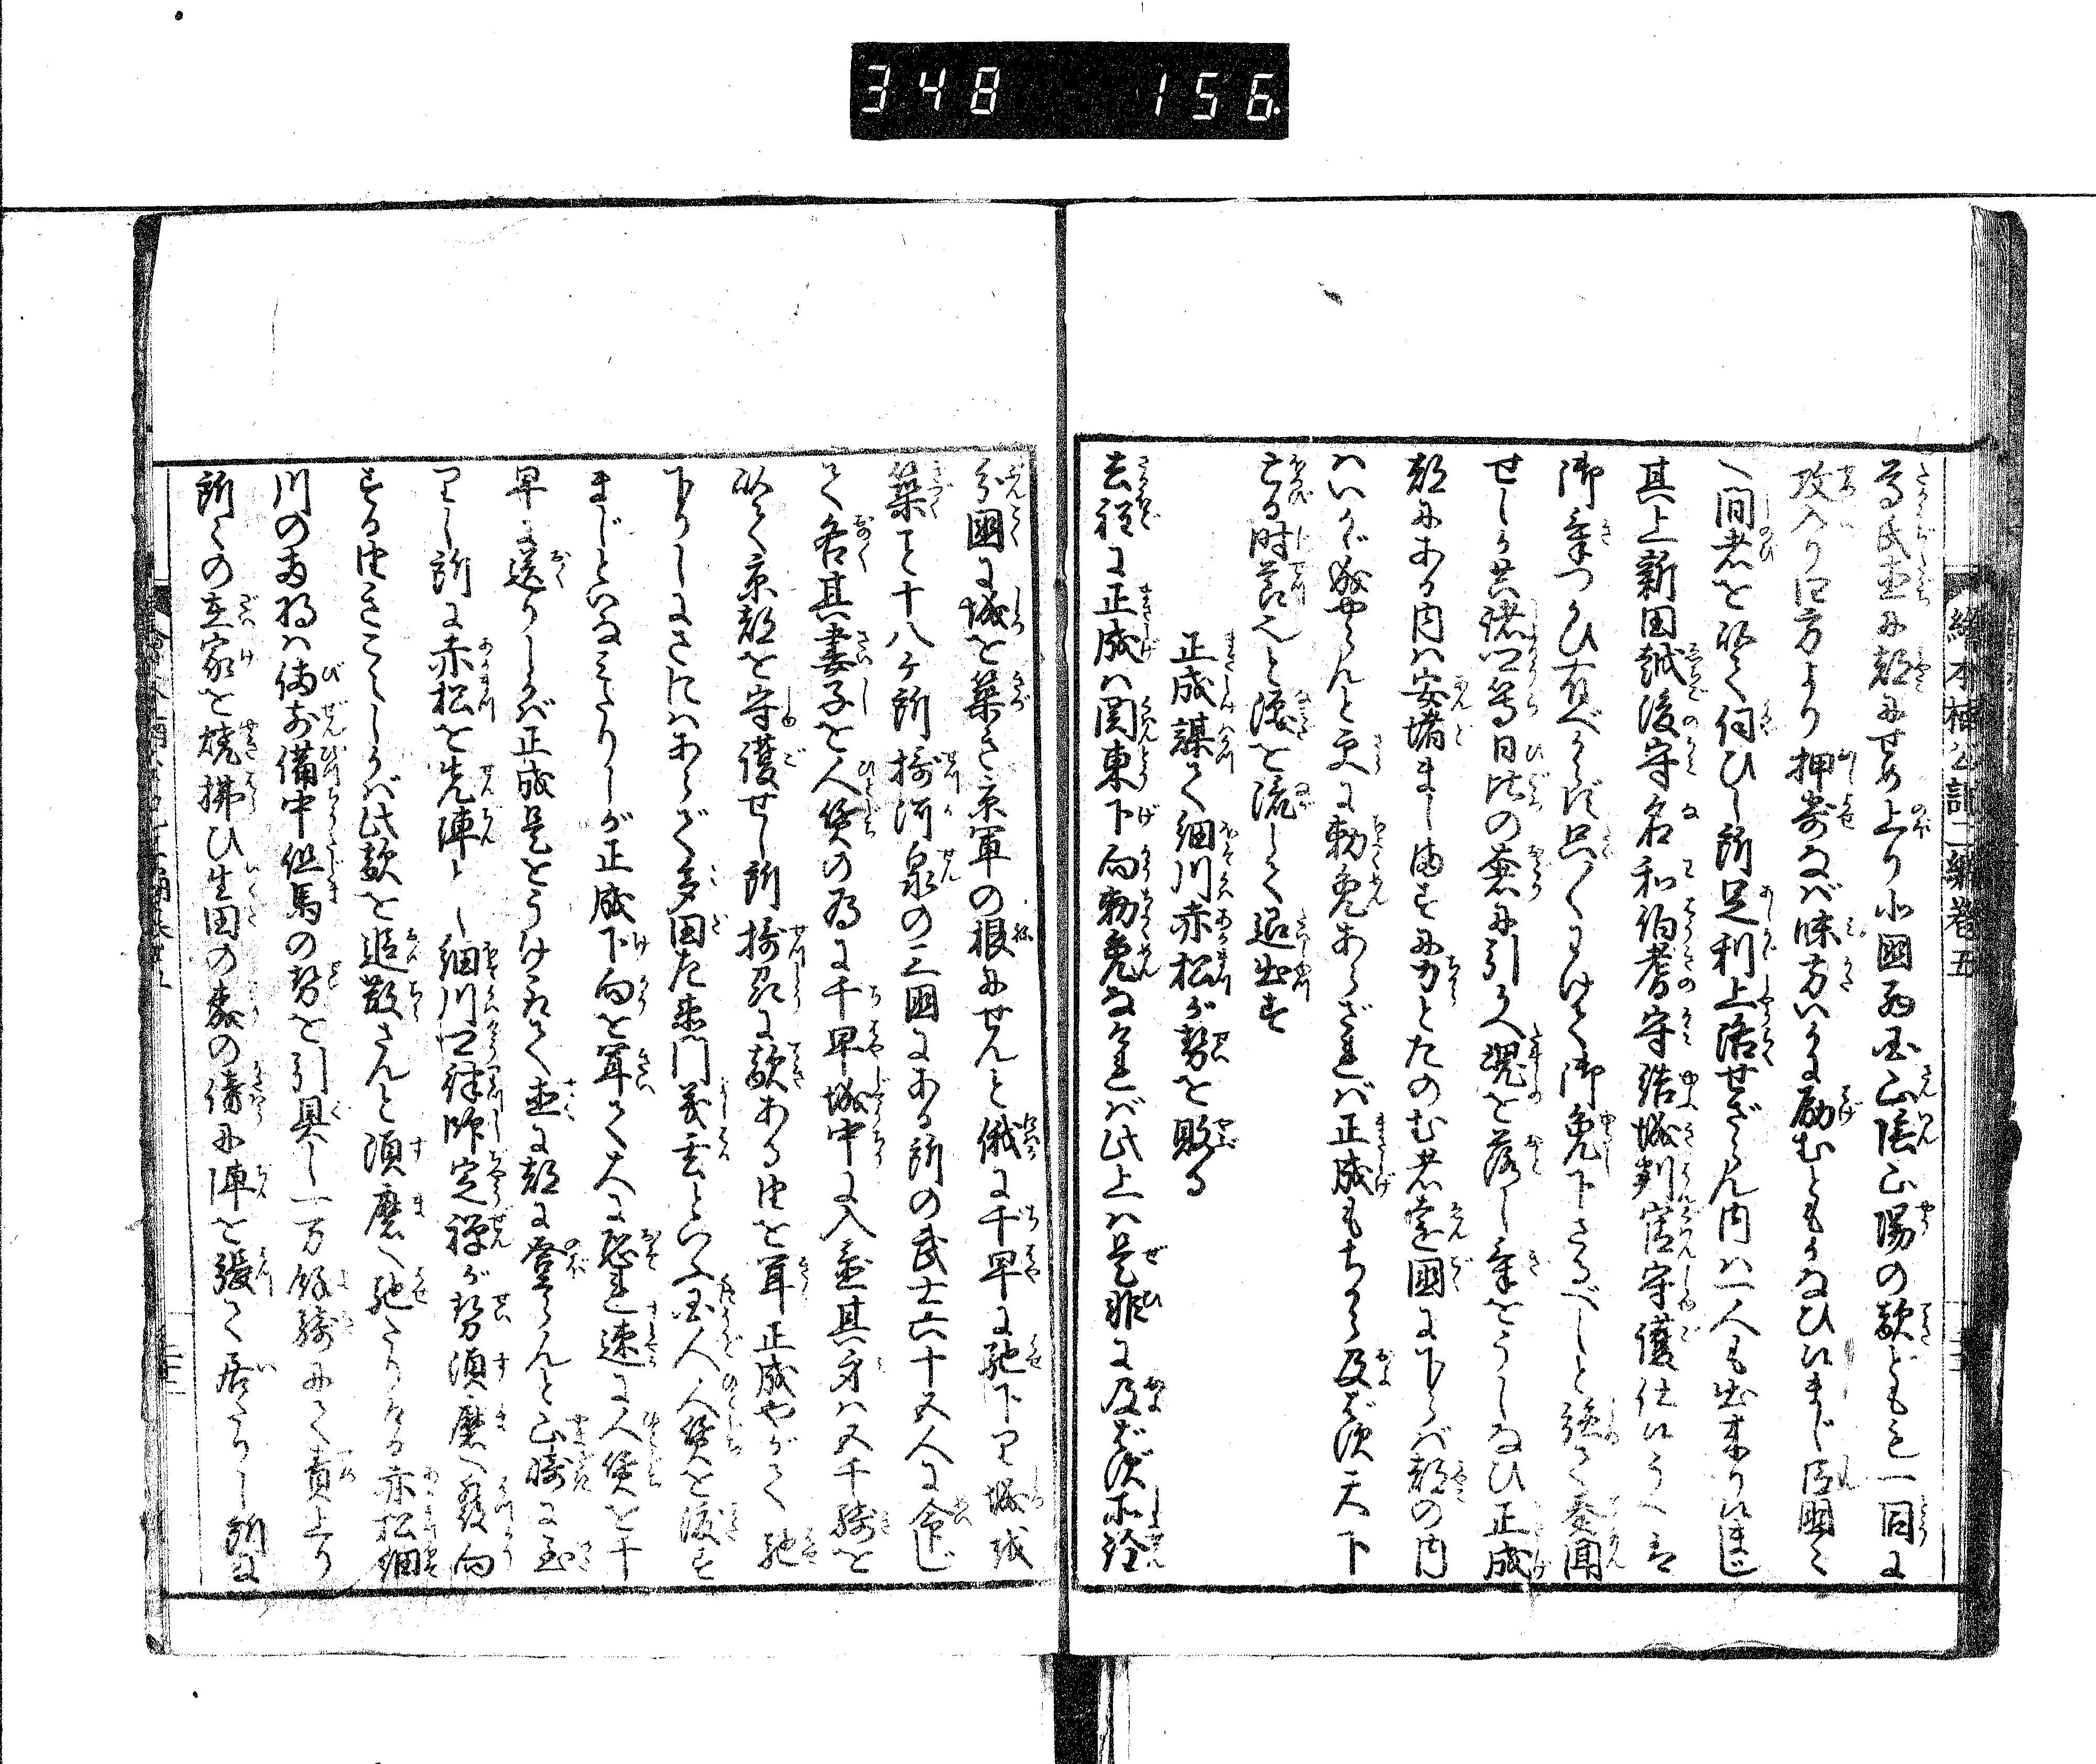 348 156.
繪本楠公記二編巻五
尊氏直に都にせめ上り北國西国山陰山陽の敵ども一同に
攻入り四方より押寄なば味方いかに励むともかなひ候まじ 國々
へ間者を 伺ひし所足利上洛せざらん内は一人も出来り候まじ
其上新田越後守名和伯耆守結城判官守護仕候うへは
御 つかひ有べからず只 まげて御免下さるべしと強て奏聞
せしか共諸卿等日比の奢に引かへ魂を落し気をうしなひ正成
都にある内は安堵まし ますに力とたのむ者遠國に下らば都の内
はいかゞ成やらんと更に勅免あらざれば正成もちから及ばず天下
亡る時節也と涙を流して退出す
正成謀て細川赤松が勢を敗る
去程に正成は関東下向勅免なければ此上は是非に及ばず所詮
國に城を築き京軍の根にせんと俄に千早に馳下り城或
築こと十八ヶ所摂河泉の三國にある所の武士六十五人に命じ
て各其妻子を人質の為に千早城中に入置其身は五千騎を
以て京都を守護せし所摂州に敵ある由を聞正成やがて馳
下りしにさにはあらで多田左衛門義 といふ国人人質を渡す
まじといなみたりしが正成下向を聞て大に恐れ速に人質を千
早に送りしかば正成是をうけ取て直に都に登らんと山崎に至
りし所に赤松を先陣とし細川 律師定禅が勢須磨へ發向
する由きこえしかば此敵を追散さんと須磨へ馳たりける赤松細
川の両将は備前備中但馬の勢を引具し一万餘騎にて責上り
所々の在家を燒拂ひ生田の森の傍に陣を張て居たりし所に